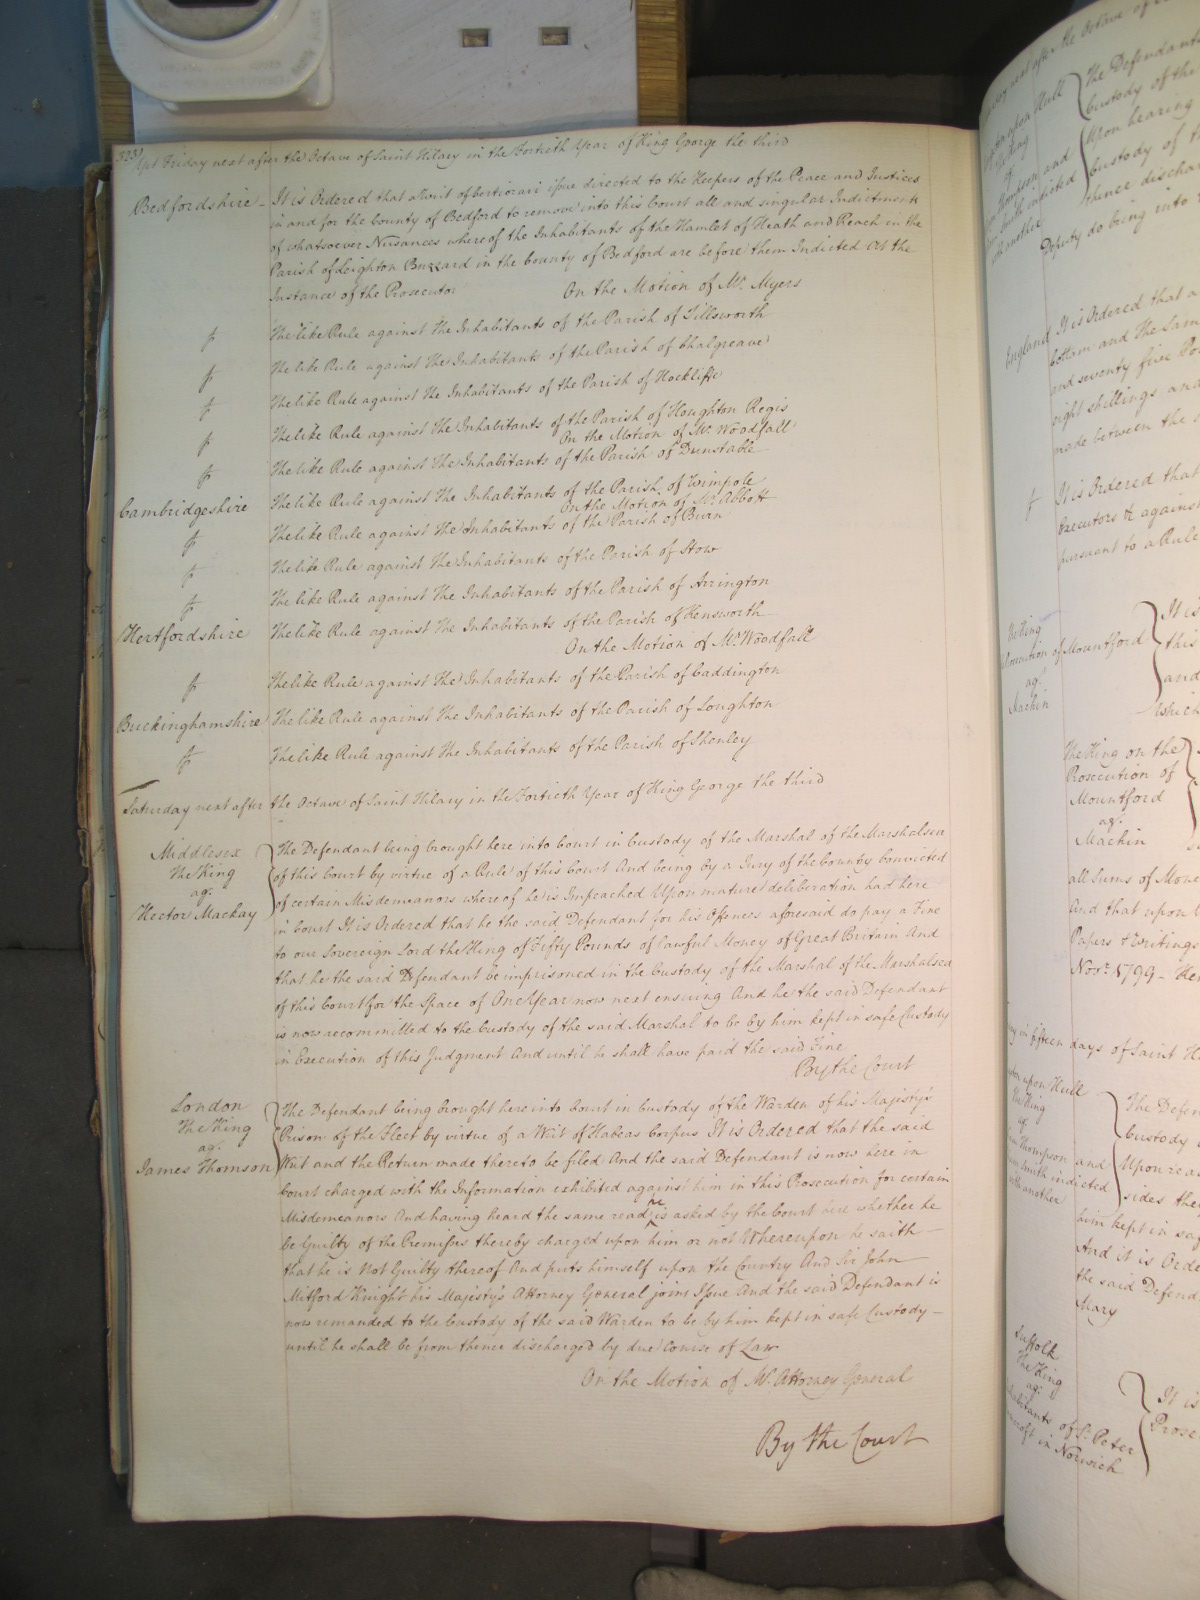 Yet Friday next after the Octave of Saint Hilary in the Fortieth Year of King George the third
Bedfordshire - It is Ordered that a Writ of Certiorari issue directed to the Keepers of the Peace and Justices
in and for the County of Bedford to remove into this Court all and singular Indictments
of whatsoever Nusances whereof the Inhabitants of the Hamlet of Heath and Reach in the
Parish of Leighton Buzzard in the County of Bedford are before them Indicted At the
Instance of the Prosecutor On the Motion of Mr. Myers
The like Rule against the Inhabitants of the Parish of Tillsworth
The like Rule against the Inhabitants of the Parish of Chalgreave
The like Rule against the Inhabitants of the Parish of Hockliffe
The like Rule against the Inhabitants of the Parish of Houghton Regis
On the Motion of Mr. Woodfall
The like Rule against the Inhabitants of the Parish of Dunstable
Cambridgeshire The like Rule against the Inhabitants of the Parish of Wimpole
On the Motion of Mr. Abbott
The like Rule against the Inhabitants of the Parish of Burn
The like Rule against the Inhabitants of the Parish of Stow
The like Rule against the Inhabitants of the Parish of Arrington
Hertfordshire The like Rule against the Inhabitants of the Parish of Kensworth
On the Motion of Mr. Woodfall
The like Rule against the Inhabitants of the Parish of Caddington
Buckinghamshire The like Rule against the Inhabitants of the Parish of Loughton
The like Rule against the Inhabitants of the Parish of Shenley
Saturday next after the Octave of Saint Hilary in the Fortieth Year of King George the third
Middlesex
The King
agt.
Hector Mackay
The Defendant being brought here into Court in Custody of the Marshal of the Marshalsea
of this Court by virtue of a Rule of this Court And being by a Jury of the County Convicted
of certain Misdemeanors whereof he is Impeached Upon mature deliberation had here
in Court It is Ordered that he the said Defendant for his Offences aforesaid do pay a Fine
to our Sovereign Lord the King of Fifty Pounds of lawful Money of Great Britain And
that he the said Defendant be imprisoned in the Custody of the Marshal of the Marshalsea
of this Court for the Space of One Year now next ensuing And he the said Defendant
is now recommitted to the Custody of the said Marshal to be by him kept in safe Custody
in Execution of this Judgment And until he shall have paid the said Fine
By the Court
London
The King
agt.
James Thomson
The Defendant being brought here into Court in Custody of the Warden of his Majesty's
Prison of the Fleet by virtue of a Writ of Habeas Corpus It is Ordered that the said
Writ and the Return made thereto be filed And the said Defendant is now here in
Court charged with the Information exhibited against him in this Prosecution for certain
Misdemeanors And having heard the same read he is asked by the Court here whether he
be Guilty of the Premisses thereby charged upon him or not Whereupon he saith
that he is Not Guilty thereof And puts himself upon the Country And Sir John
Mitford Knight his Majesty's Attorney General joins Issue And the said Defendant is
now remanded to the Custody of the said Warden to be by him kept in safe Custody
until he shall be from thence discharged by due Course of Law
On the Motion of Mr. Attorney General
By the Court
The Defendants
Custody of the
Upon hearing
Custody of the
thence discha
Deputy do bring into
England It is Ordered that a
bottom and the Sam
and seventy five Po
eight shillings and
made between the
It is Ordered that
Executors & against
pursuant to a Rule
The King
of Mountford
agt.
Machin
It is
this
and
which
The King on the
Prosecution of
Mountford
agt.
Machin
all Sums of Mone
And that upon
Papers & Writings
Novr. 1799
in fifteen days of Saint H
upon Hull
The King
agt.
Thompson and
Smith indicted
with another
The Defen
Custody
Upon rea
sides the
him kept in saf
And it is Orde
the said Defend
Mary
Suffolk
The King
agt.
Inhabitants of St. Peter
in Norwich
It is
Prose